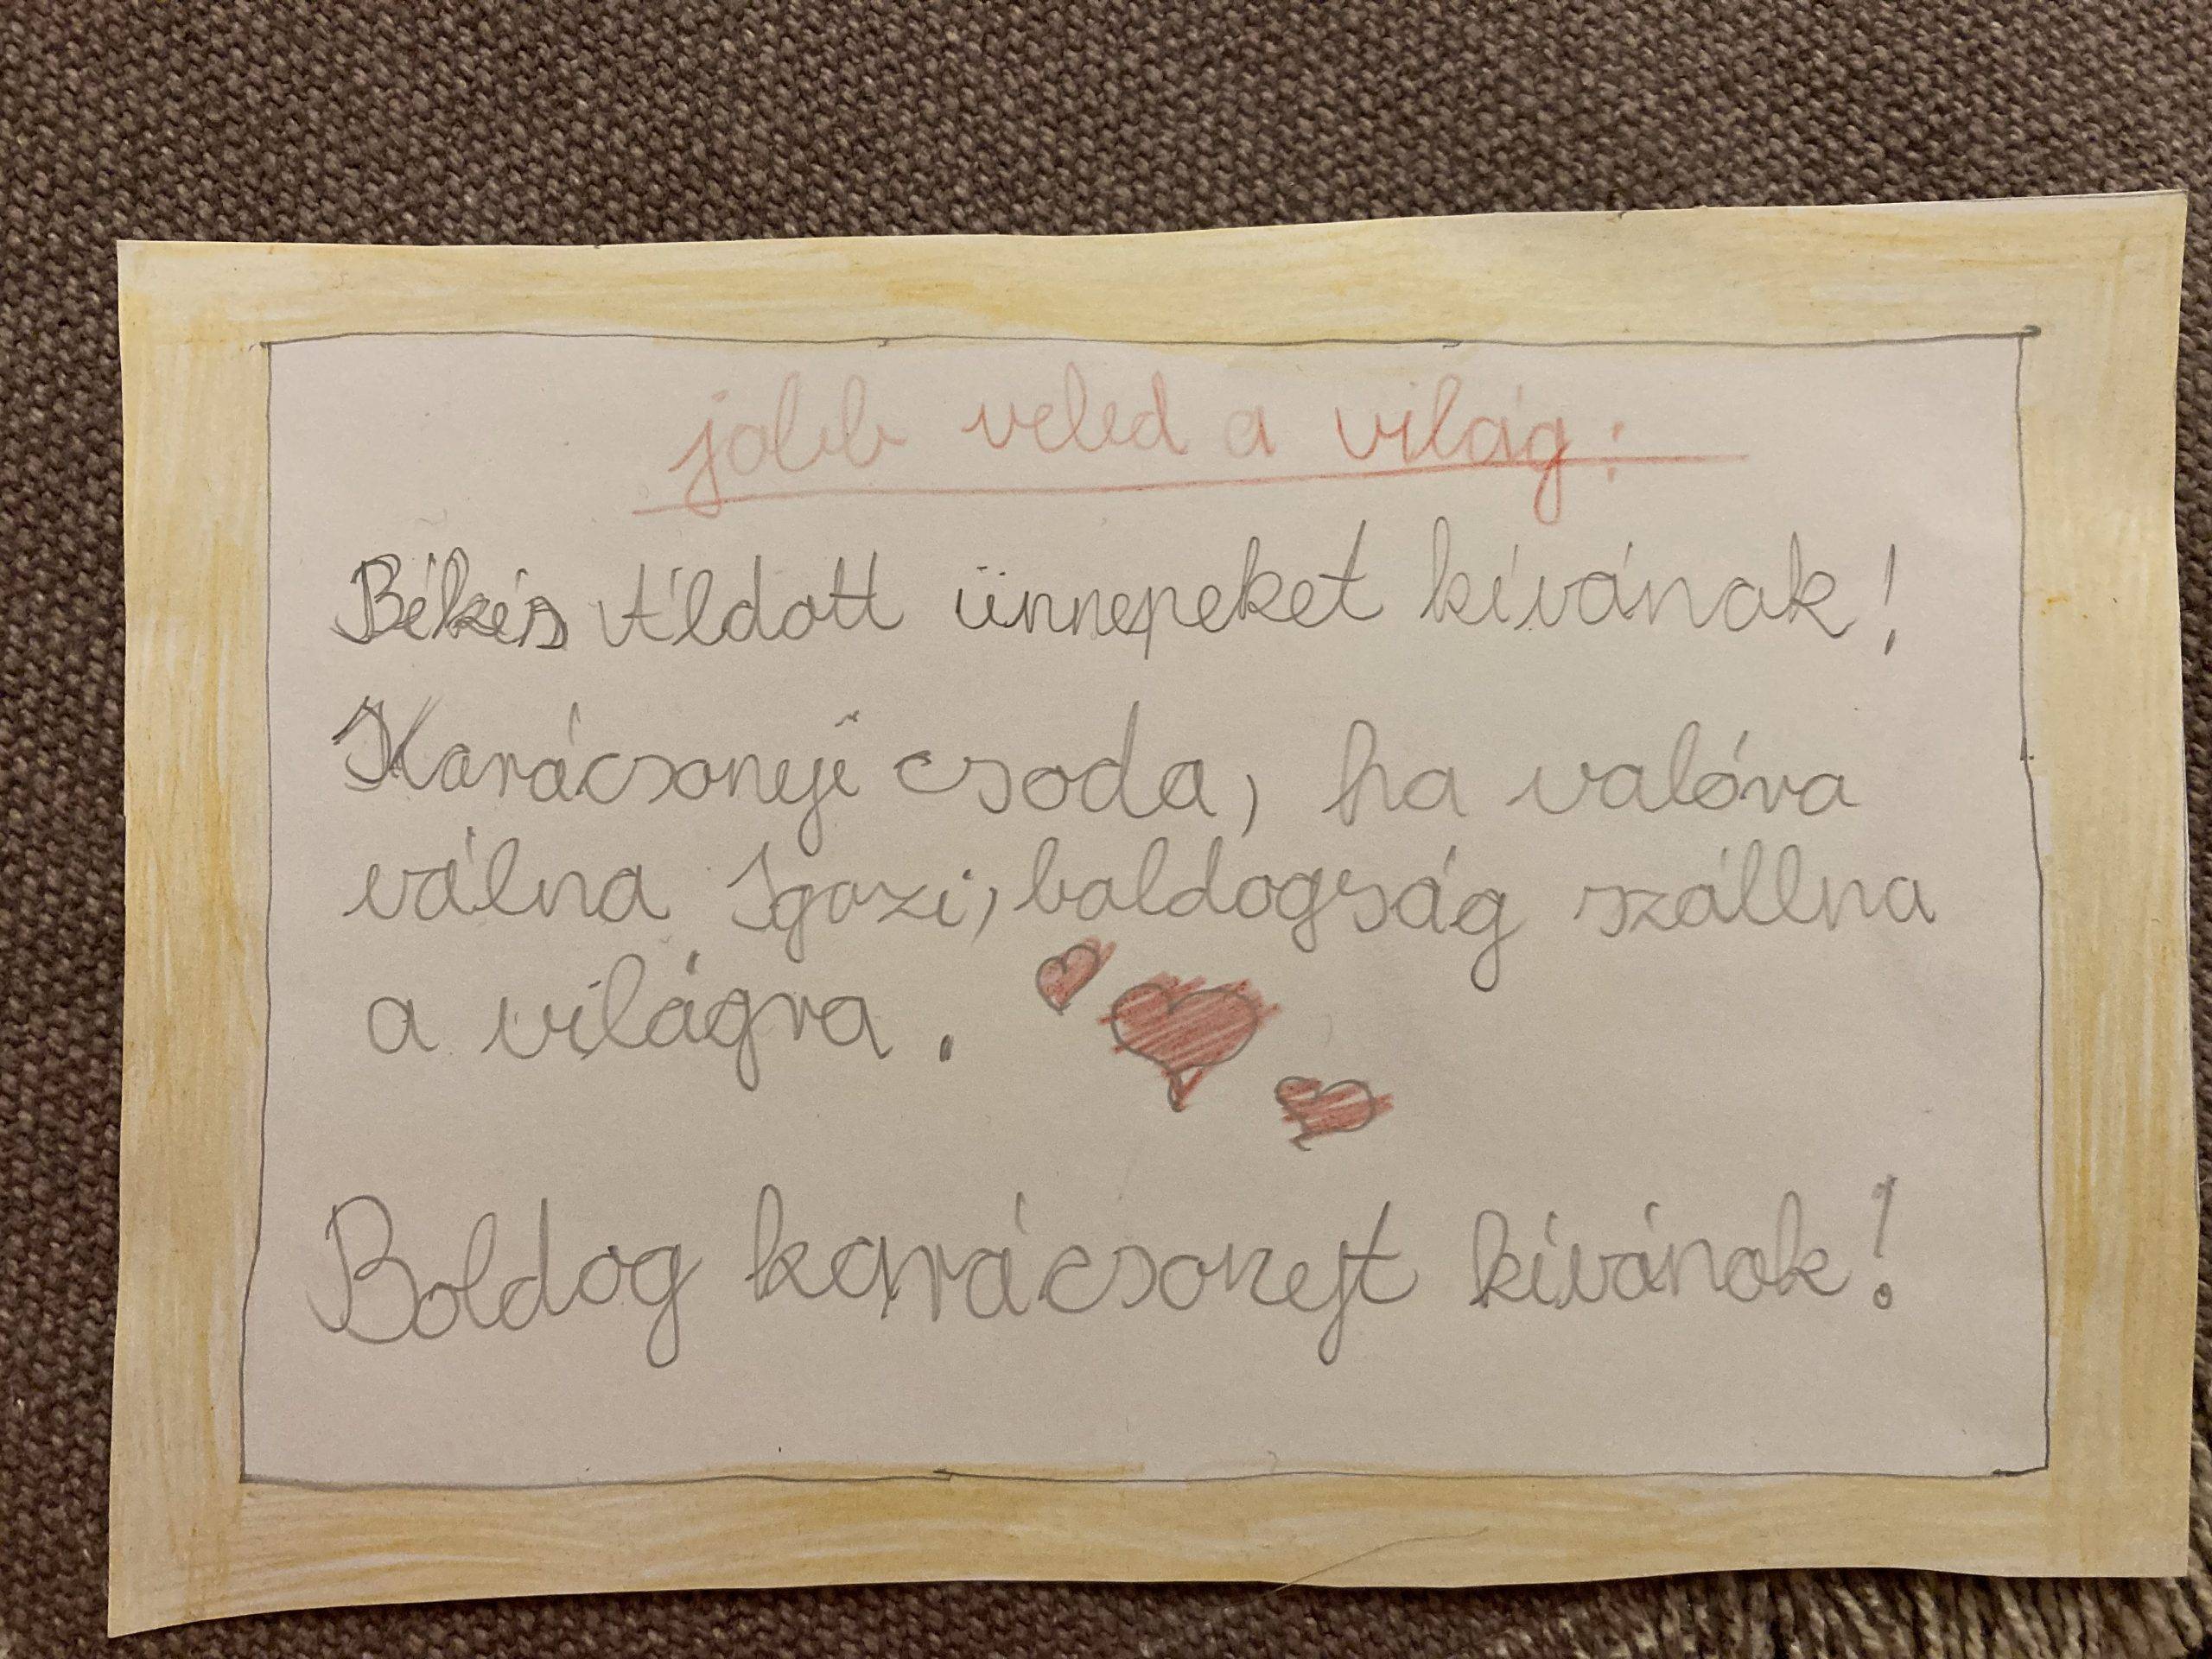 jobb veled a világ:
Békés Áldott ünnepeket kívánok!
Karácsonyi csoda, ha valóra
válna Igazi, boldogság szállna
a világra.
Boldog karácsonyt kívánok!